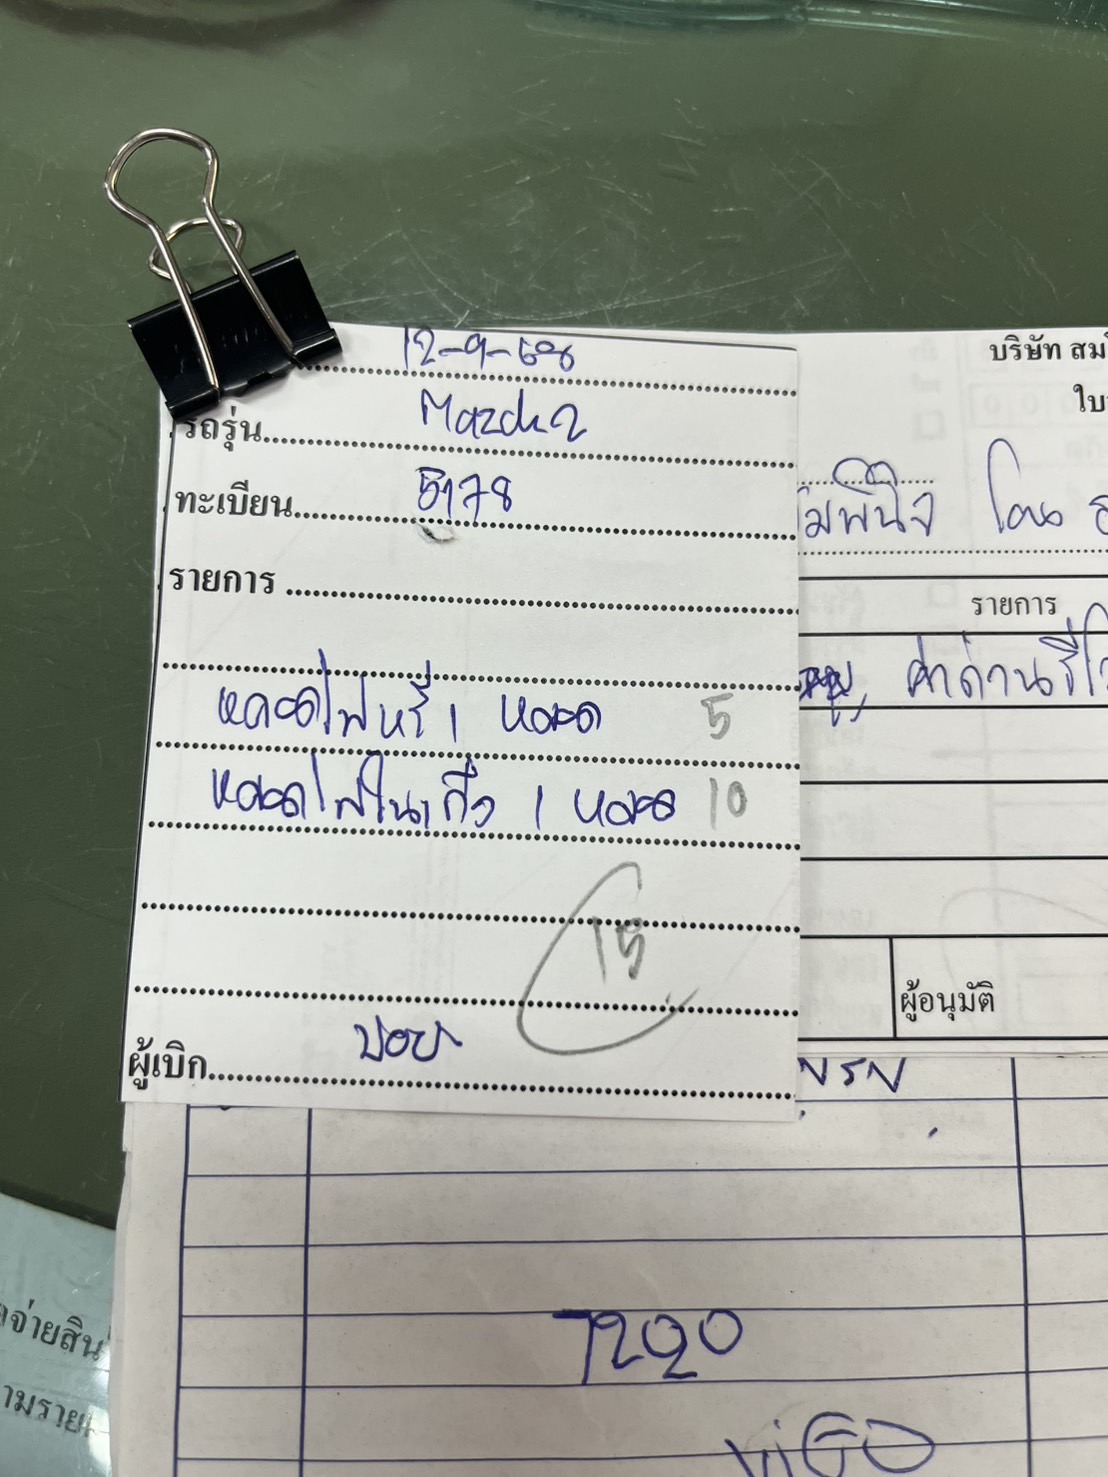 12-9-68
รถรุ่น Mazda2
ทะเบียน 5178
รายการ
หลอดไฟหรี่ 1 หลอด 5
หลอดไฟในเก๋ง 1 หลอด 10
15
ผู้เบิก ปอย
บริษัท สม
ใบ
พินิจ โดย
รายการ
ค่าถ่านรีโ
ผู้อนุมัติ
7220
ViGO
จ่ายสิน
ามราย